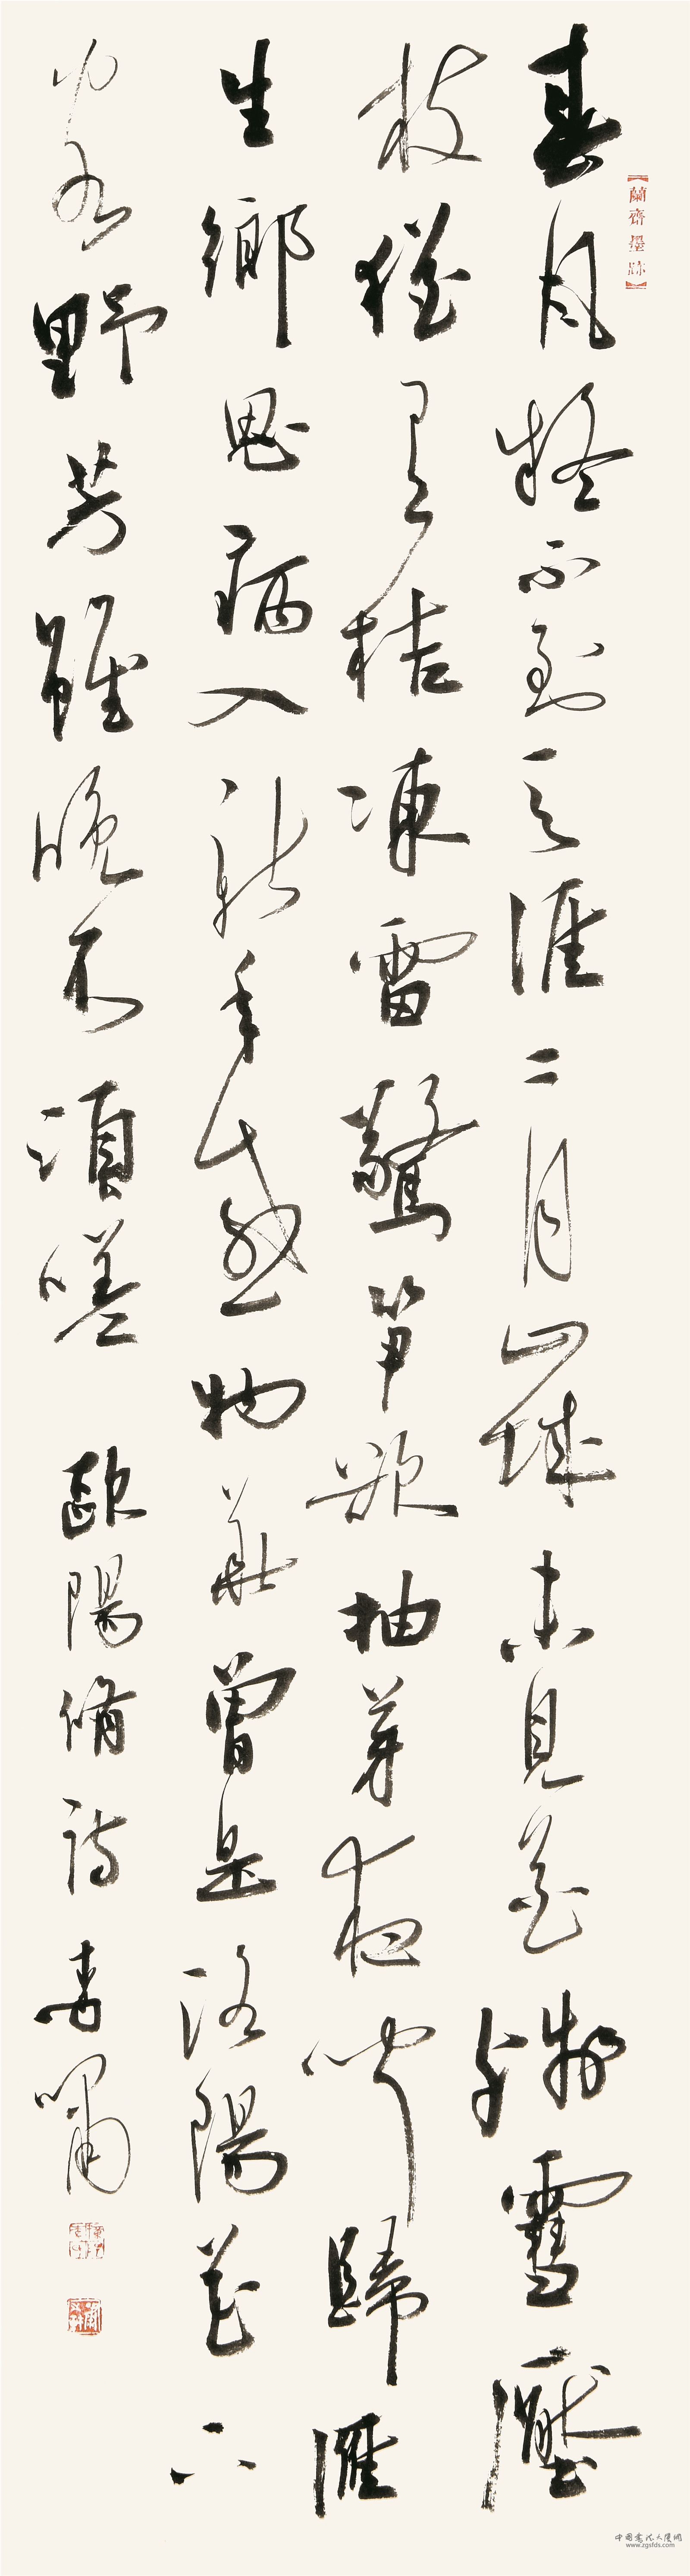 春風疑不到天涯二月山城未見花殘雪壓
枝猶有桔凍雷驚筍欲抽芽夜聞歸雁
生鄉思病入新年感物華曾是洛陽花下
客野芳雖晚不須嗟
歐陽脩詩 書嘯
蘭齋墨跡
中国书法大厦网
www.zgsfds.com